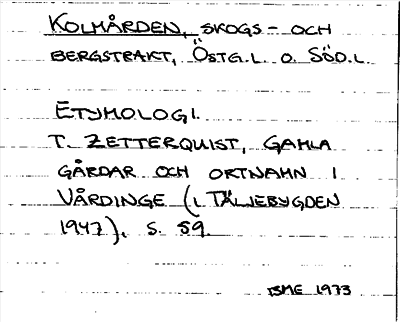 KOLMÅRDEN, SKOGS- OCH
BERGSTRAKT, ÖSTG.L. O. SÖD.L.
ETYMOLOGI.
T. ZETTERQUIST, GAMLA
GÅRDAR OCH ORTNAMN I
VÅRDINGE (I TÄLJEBYGDEN
1947), S. 59.
ISME 1973